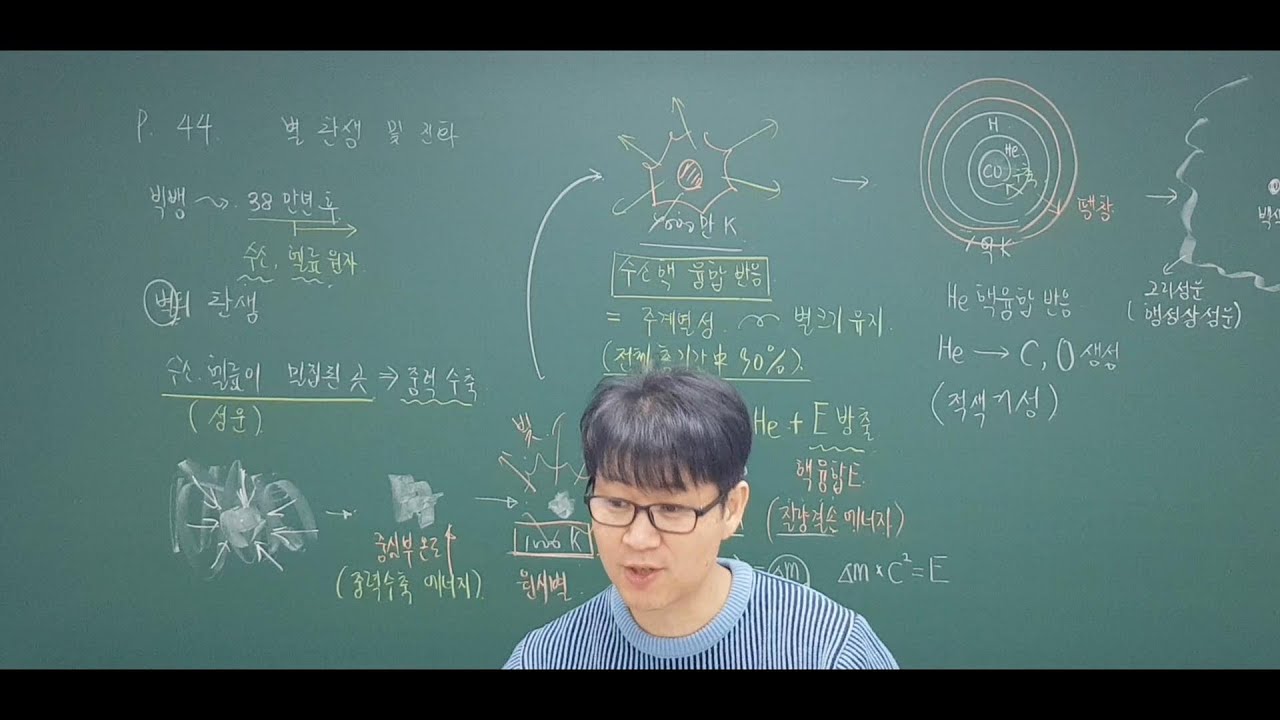 P. 44. 별 탄생 및 진화
빅뱅 38만년 후
수소, 헬륨 원자
별의 탄생
수소, 헬륨이 밀집된 곳 ⇒ 중력 수축
(성운)
중심부 온도↑
(중력수축 에너지)
빛
1000 K
원시별
1000만 K
수소핵 융합 반응
= 주계열성. 별크기 유지.
(전체 초기 가 中 90%)
He + E 방출
핵융합E.
(질량결손 에너지)
Δm Δm × C² = E
H
He
CO 수축
팽창
1억 K
He 핵융합 반응
He → C, O 생성
(적색거성)
고리성운
(행성상성운)